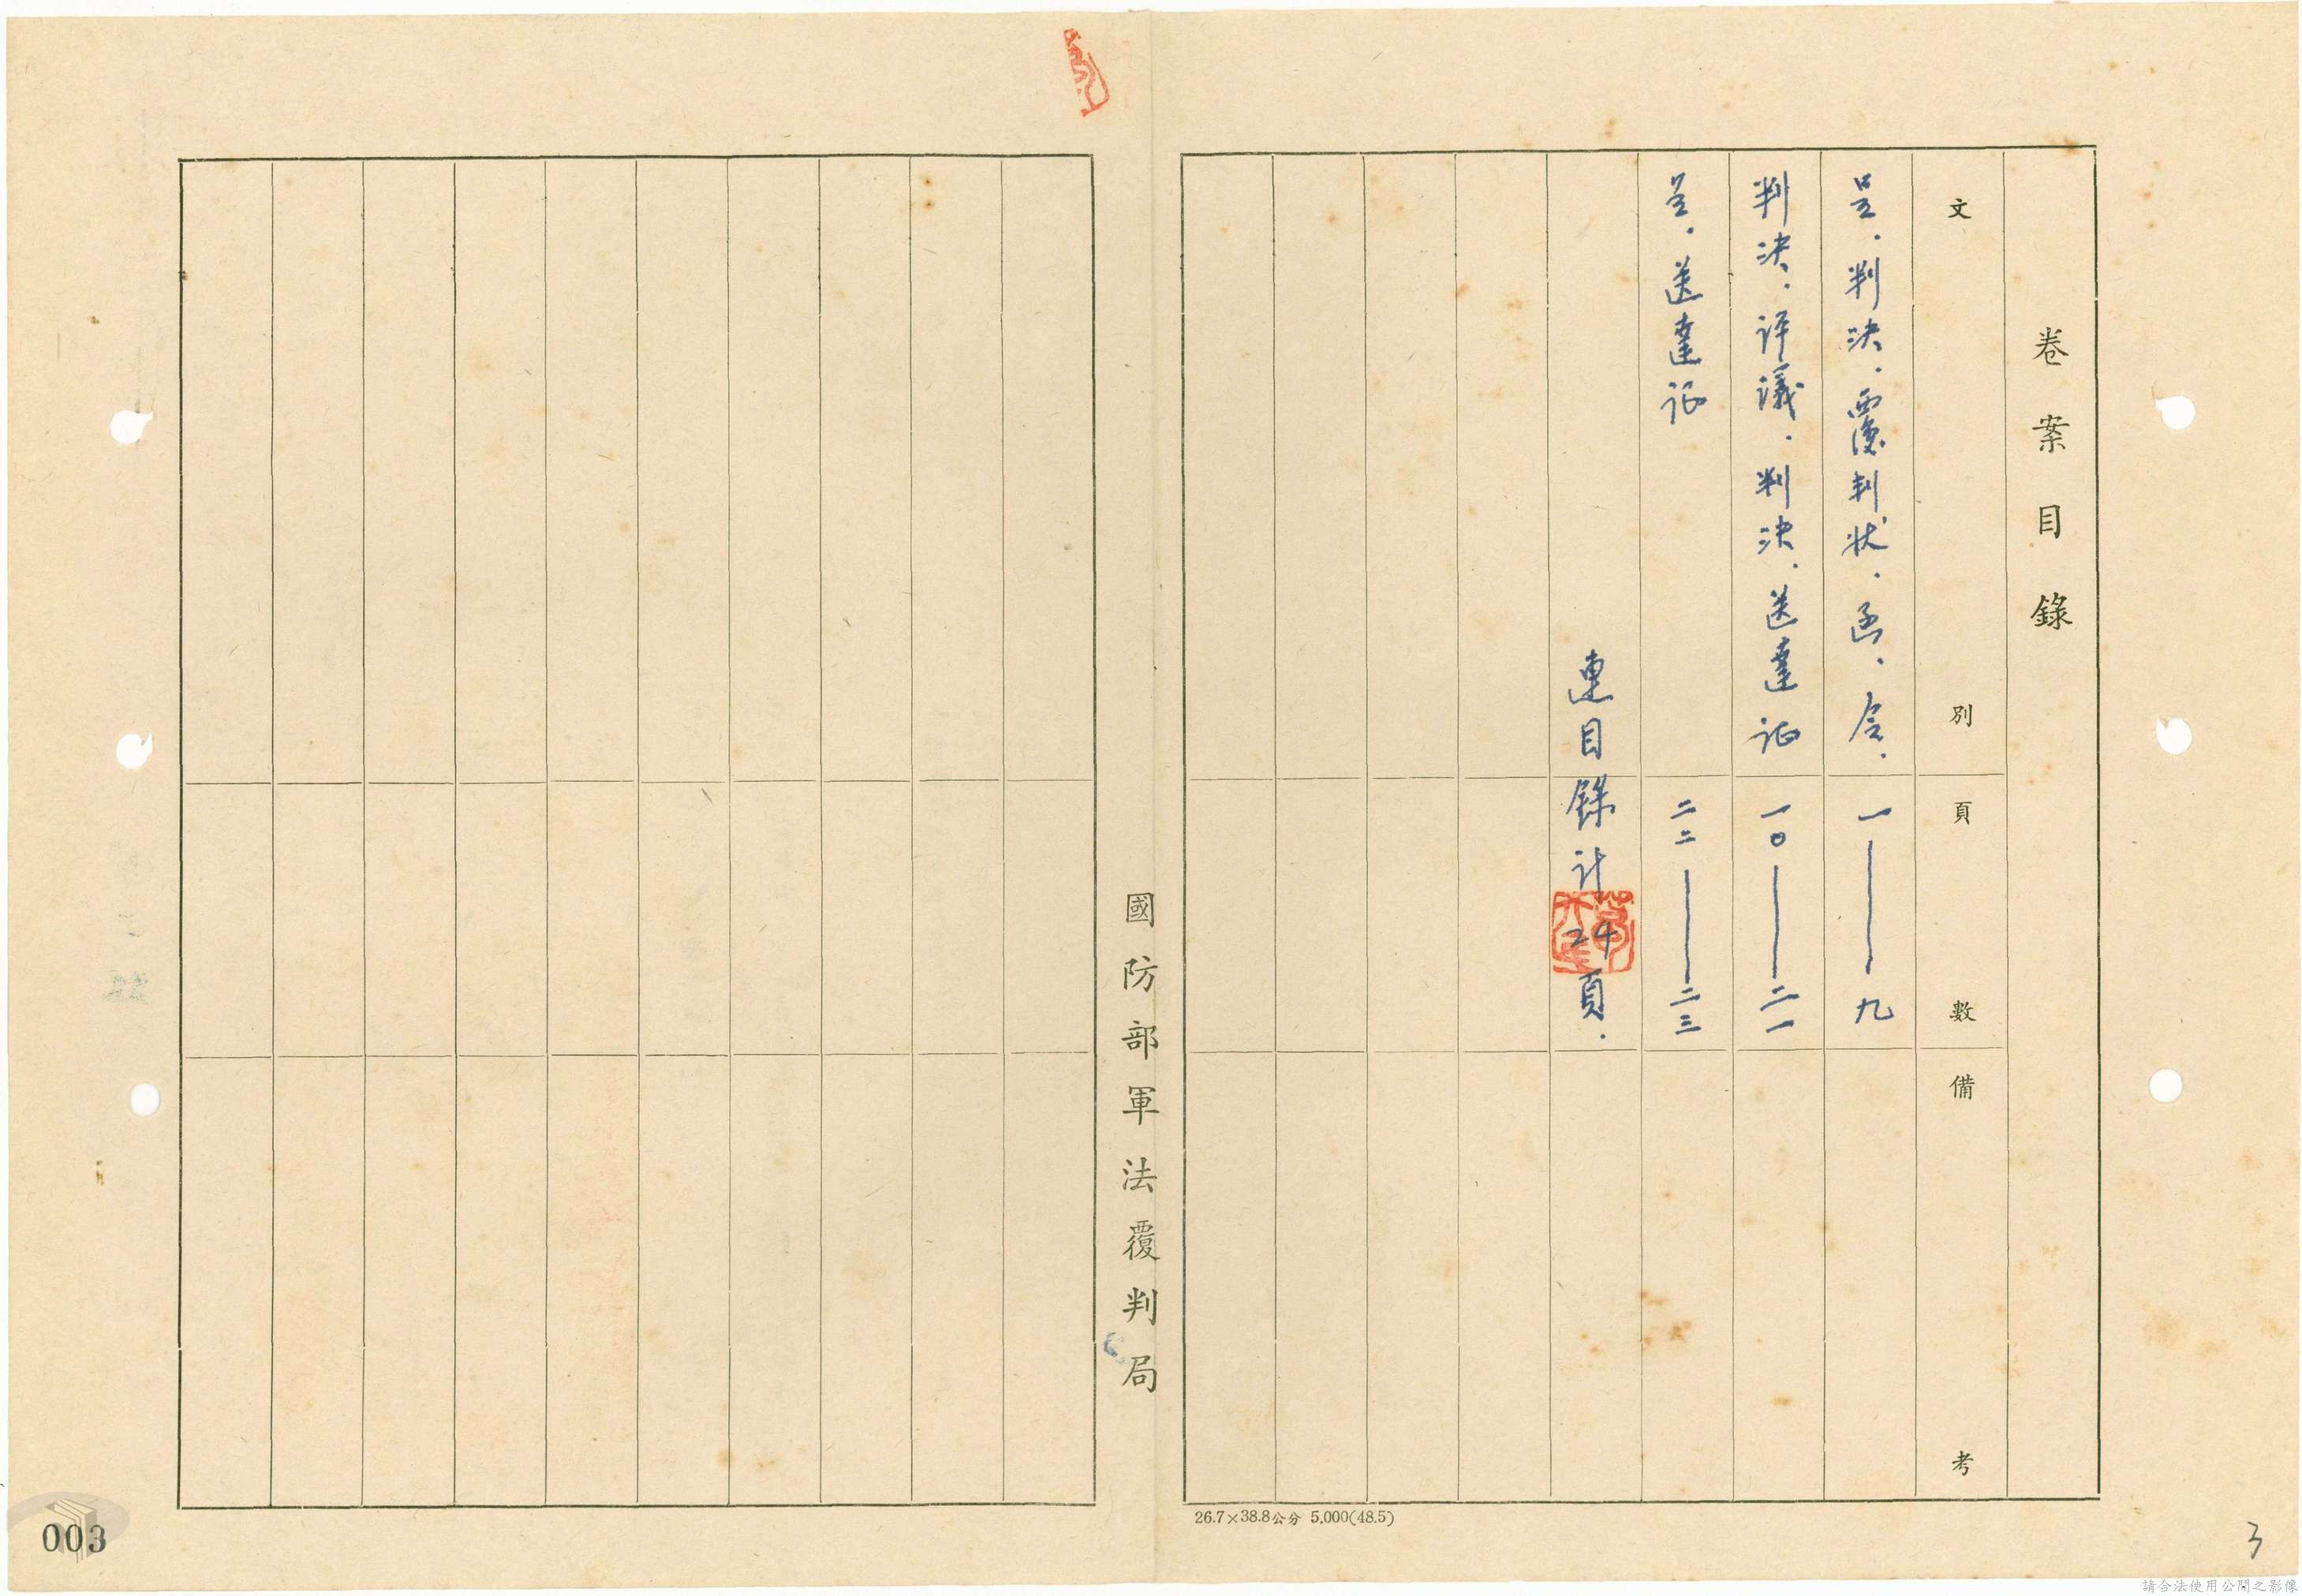 卷案目錄
文別
頁數
備考
呈．判決．覆判状．函．令．
一——九
判決．評議．判決．送達证
一〇——二一
呈．送達证
二二——二三
連目錄計24頁．
國防部軍法覆判局
26.7×38.8公分 5,000(48.5)
003
3
請合法使用公開之影像